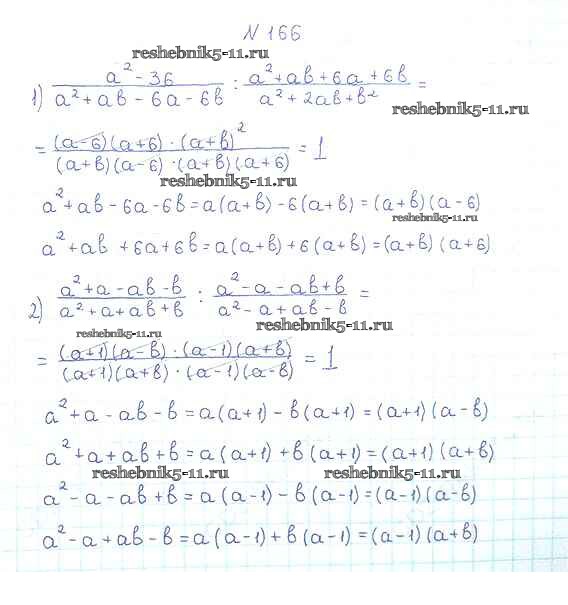 №166
reshebnik5-11.ru
1) (a² - 36)/(a² + ab - 6a - 6b) : (a² + ab + 6a + 6b)/(a² + 2ab + b²) =
reshebnik5-11.ru
= ((a-6)(a+6)·(a+b)²)/((a+b)(a-6)·(a+b)(a+6)) = 1
reshebnik5-11.ru
a² + ab - 6a - 6b = a(a+b) - 6(a+b) = (a+b)(a-6)
reshebnik5-11.ru
a² + ab + 6a + 6b = a(a+b) + 6(a+b) = (a+b)(a+6)
2) (a² + a - ab - b)/(a² + a + ab + b) : (a² - a - ab + b)/(a² - a + ab - b) =
reshebnik5-11.ru
reshebnik5-11.ru
= ((a+1)(a-b)·(a-1)(a+b))/((a+1)(a+b)·(a-1)(a-b)) = 1
a² + a - ab - b = a(a+1) - b(a+1) = (a+1)(a-b)
a² + a + ab + b = a(a+1) + b(a+1) = (a+1)(a+b)
reshebnik5-11.ru reshebnik5-11.ru
a² - a - ab + b = a(a-1) - b(a-1) = (a-1)(a-b)
a² - a + ab - b = a(a-1) + b(a-1) = (a-1)(a+b)